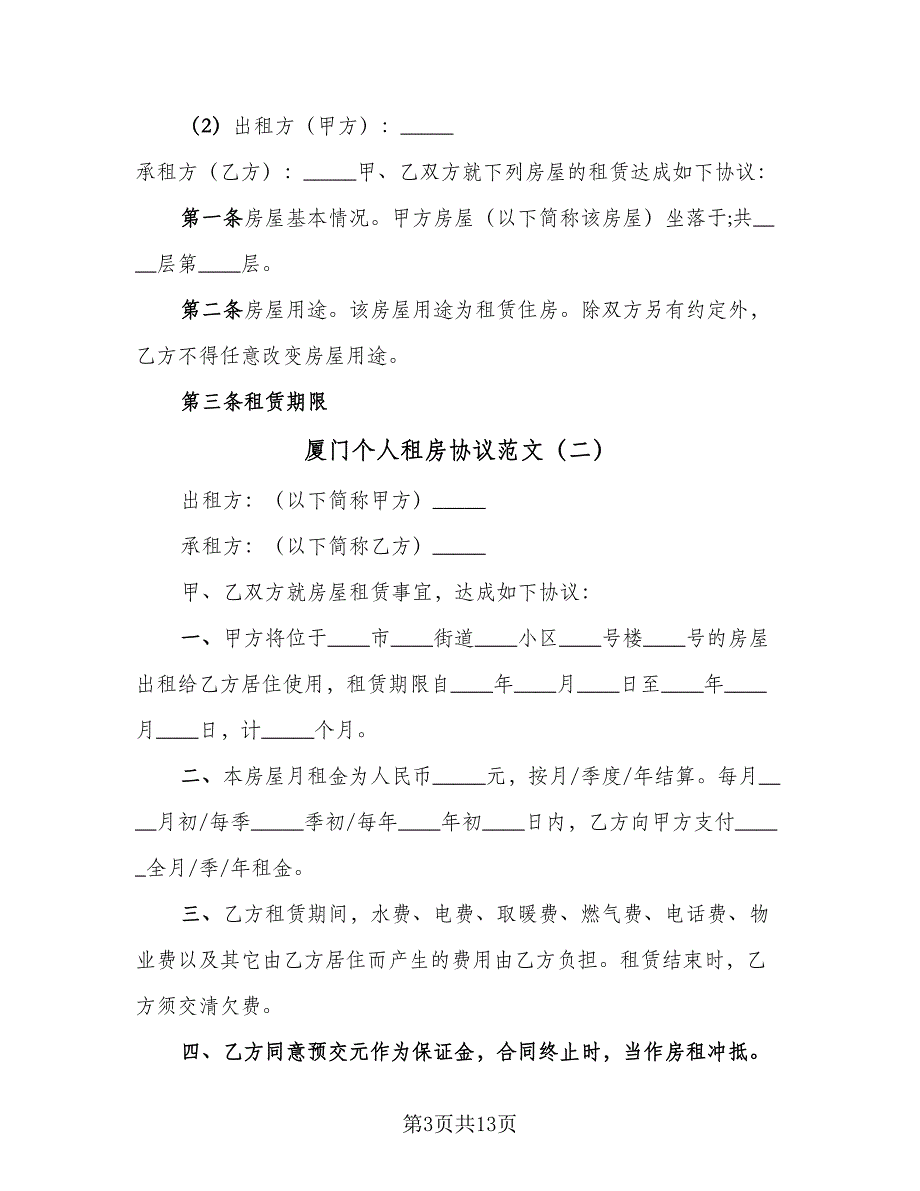 （2）出租方（甲方）：_____
承租方（乙方）：_____甲、乙双方就下列房屋的租赁达成如下协议：
第一条房屋基本情况。甲方房屋（以下简称该房屋）坐落于;共__
__层第____层。
第二条房屋用途。该房屋用途为租赁住房。除双方另有约定外，
乙方不得任意改变房屋用途。
第三条租赁期限
厦门个人租房协议范文（二）
出租方：（以下简称甲方）_____
承租方：（以下简称乙方）_____
甲、乙双方就房屋租赁事宜，达成如下协议：
一、甲方将位于____市____街道____小区____号楼____号的房屋
出租给乙方居住使用，租赁期限自____年____月____日至____年____
月____日，计_____个月。
二、本房屋月租金为人民币_____元，按月/季度/年结算。每月__
__月初/每季_____季初/每年____年初____日内，乙方向甲方支付____
_全月/季/年租金。
三、乙方租赁期间，水费、电费、取暖费、燃气费、电话费、物
业费以及其它由乙方居住而产生的费用由乙方负担。租赁结束时，乙
方须交清欠费。
四、乙方同意预交元作为保证金，合同终止时，当作房租冲抵。
第3页共13页